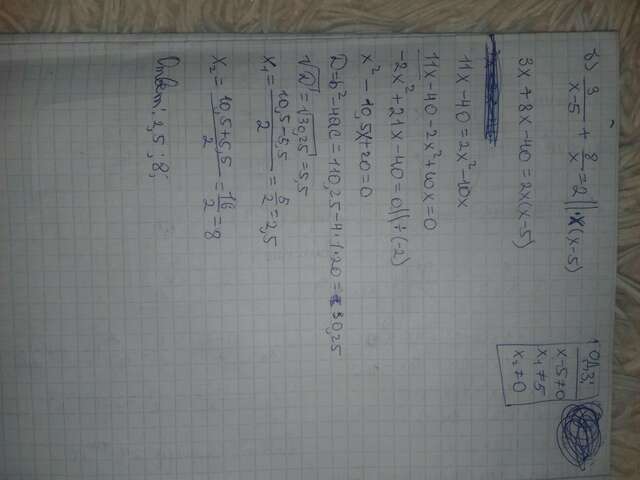 б) 3/(x-5) + 8/x = 2 || · x(x-5)
3x + 8x - 40 = 2x(x-5)
11x - 40 = 2x² - 10x
11x - 40 - 2x² + 10x = 0
-2x² + 21x - 40 = 0 || ÷(-2)
x² - 10,5x + 20 = 0
D = b² - 4ac = 110,25 - 4·1·20 = 30,25
√D = √30,25 = 5,5
x₁ = (10,5 - 5,5)/2 = 5/2 = 2,5
x₂ = (10,5 + 5,5)/2 = 16/2 = 8
Ответ: 2,5; 8;
ОДЗ:
x-5≠0
x₁≠5
x₂≠0